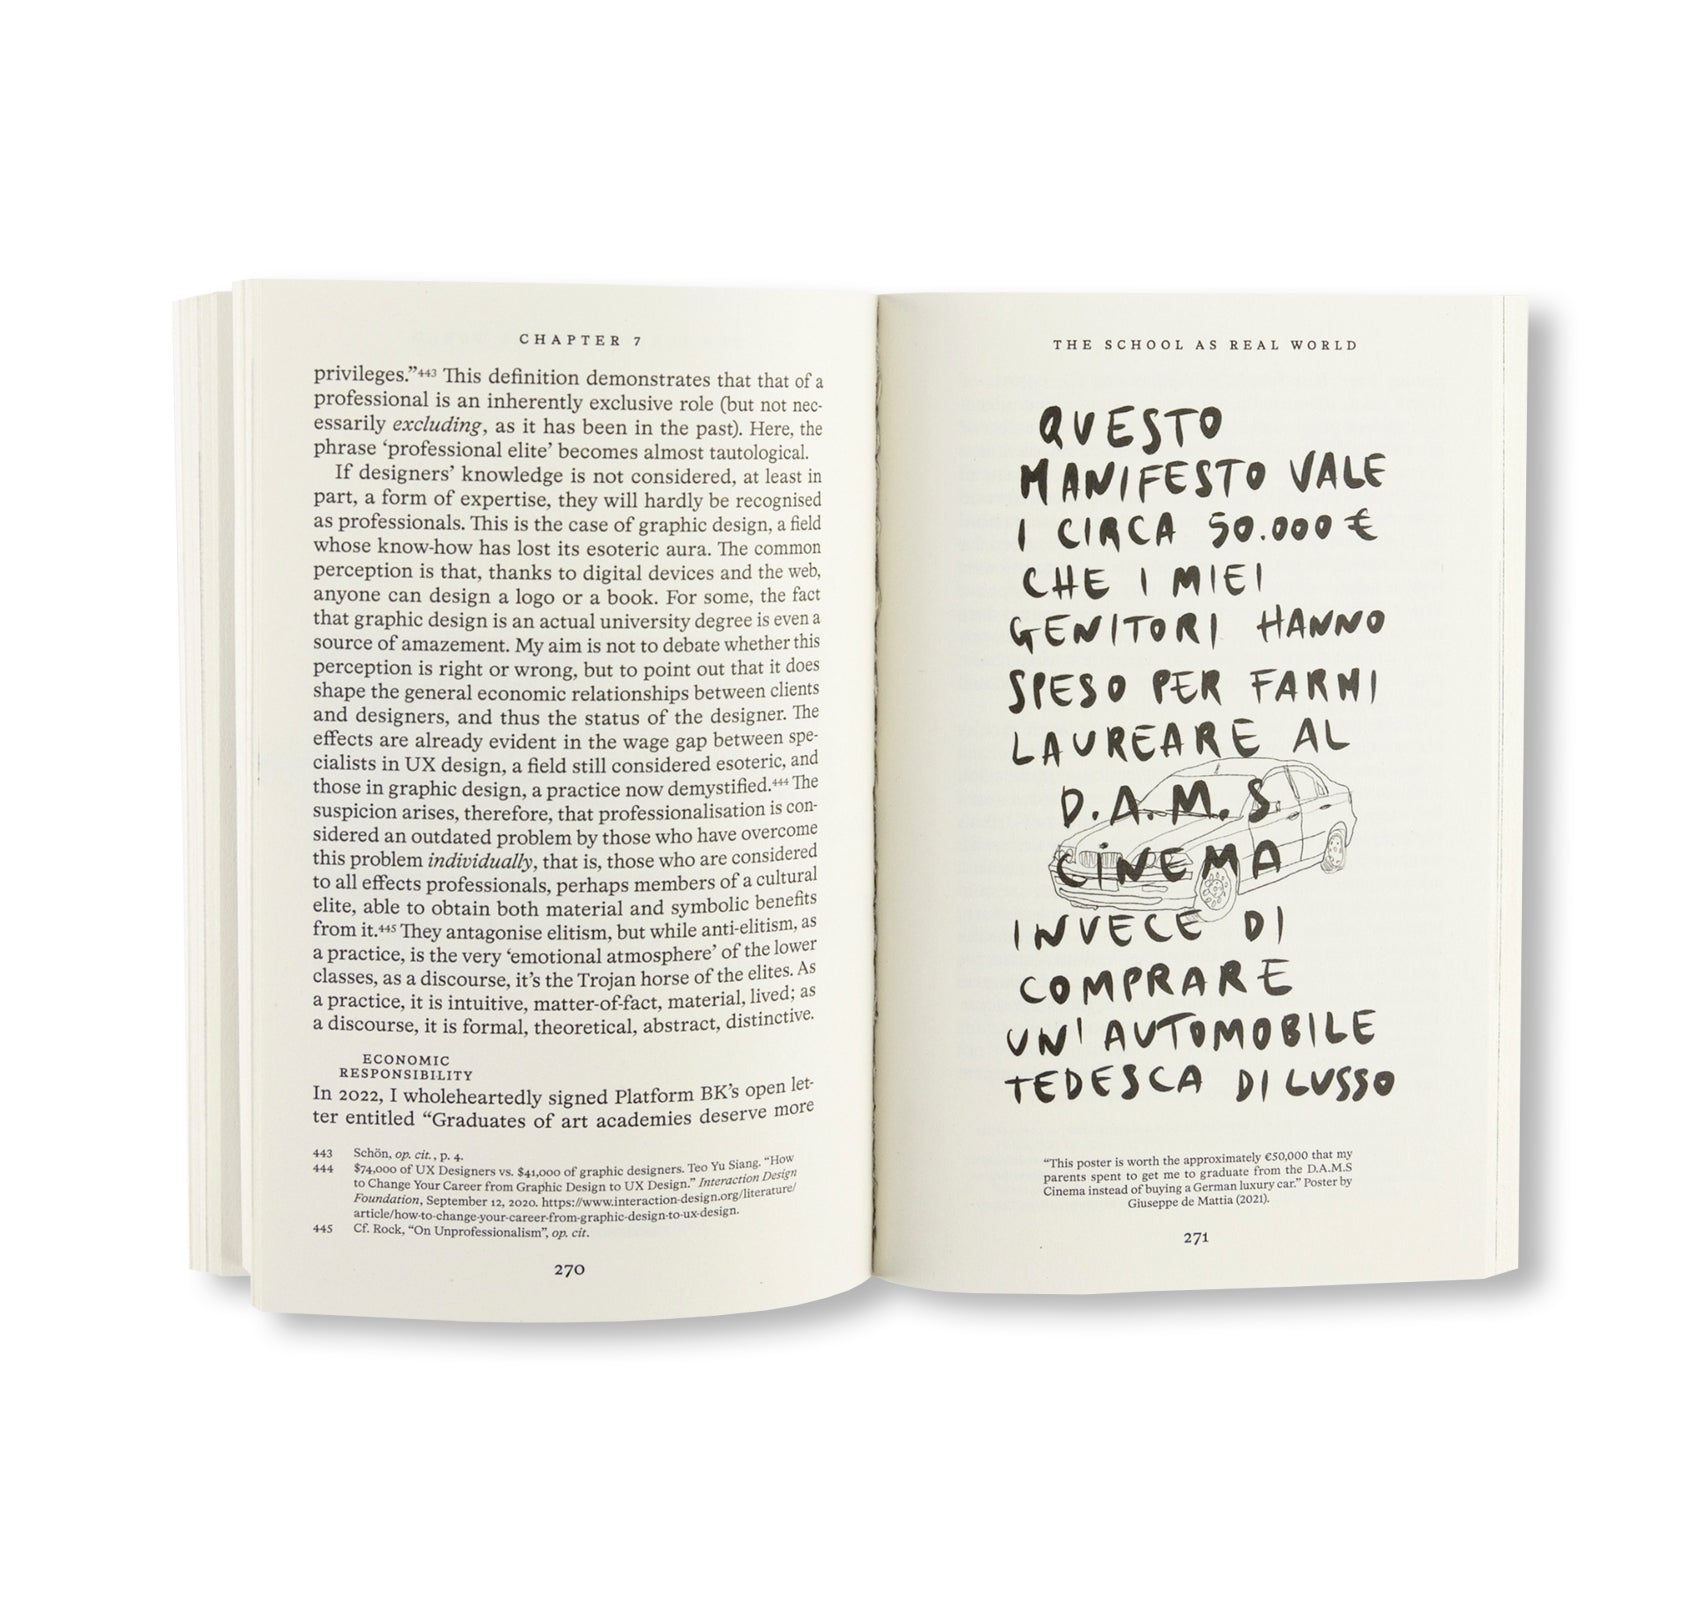 CHAPTER 7
privileges.”443 This definition demonstrates that that of a
professional is an inherently exclusive role (but not nec-
essarily excluding, as it has been in the past). Here, the
phrase ‘professional elite’ becomes almost tautological.
If designers’ knowledge is not considered, at least in
part, a form of expertise, they will hardly be recognised
as professionals. This is the case of graphic design, a field
whose know-how has lost its esoteric aura. The common
perception is that, thanks to digital devices and the web,
anyone can design a logo or a book. For some, the fact
that graphic design is an actual university degree is even a
source of amazement. My aim is not to debate whether this
perception is right or wrong, but to point out that it does
shape the general economic relationships between clients
and designers, and thus the status of the designer. The
effects are already evident in the wage gap between spe-
cialists in UX design, a field still considered esoteric, and
those in graphic design, a practice now demystified.444 The
suspicion arises, therefore, that professionalisation is con-
sidered an outdated problem by those who have overcome
this problem individually, that is, those who are considered
to all effects professionals, perhaps members of a cultural
elite, able to obtain both material and symbolic benefits
from it.445 They antagonise elitism, but while anti-elitism, as
a practice, is the very ‘emotional atmosphere’ of the lower
classes, as a discourse, it’s the Trojan horse of the elites. As
a practice, it is intuitive, matter-of-fact, material, lived; as
a discourse, it is formal, theoretical, abstract, distinctive.
ECONOMIC
RESPONSIBILITY
In 2022, I wholeheartedly signed Platform BK’s open let-
ter entitled “Graduates of art academies deserve more
443 Schön, op. cit., p. 4.
444 $74,000 of UX Designers vs. $41,000 of graphic designers. Teo Yu Siang. “How
to Change Your Career from Graphic Design to UX Design.” Interaction Design
Foundation, September 12, 2020. https://www.interaction-design.org/literature/
article/how-to-change-your-career-from-graphic-design-to-ux-design.
445 Cf. Rock, “On Unprofessionalism”, op. cit.
270
THE SCHOOL AS REAL WORLD
QUESTO
MANIFESTO VALE
I CIRCA 50.000 €
CHE I MIEI
GENITORI HANNO
SPESO PER FARMI
LAUREARE AL
D.A.M.S.
CINEMA
INVECE DI
COMPRARE
UN' AUTOMOBILE
TEDESCA DI LUSSO
“This poster is worth the approximately €50,000 that my
parents spent to get me to graduate from the D.A.M.S
Cinema instead of buying a German luxury car.” Poster by
Giuseppe de Mattia (2021).
271